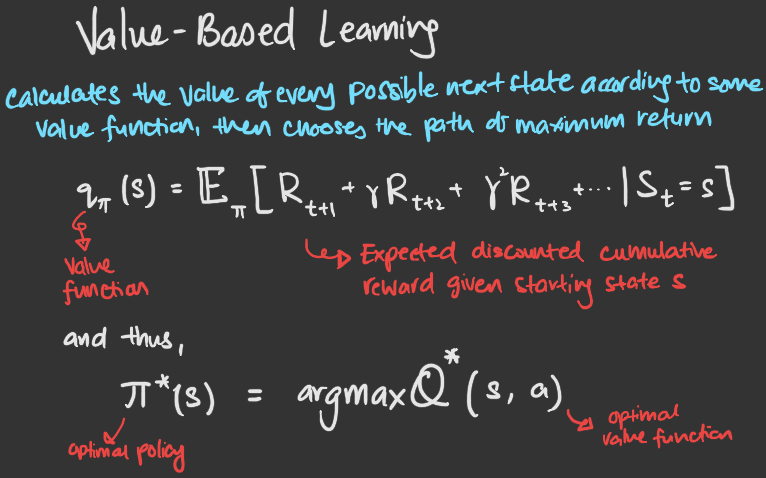 Value-Based Learning
calculates the value of every possible next state according to some
value function, then chooses the path of maximum return
q_π(s) = 𝔼_π[R_{t+1} + γR_{t+2} + γ²R_{t+3} + ... | S_t = s]
value
function
Expected discounted cumulative
reward given starting state s
and thus,
π*(s) = argmax Q*(s, a)
optimal policy
optimal
value function